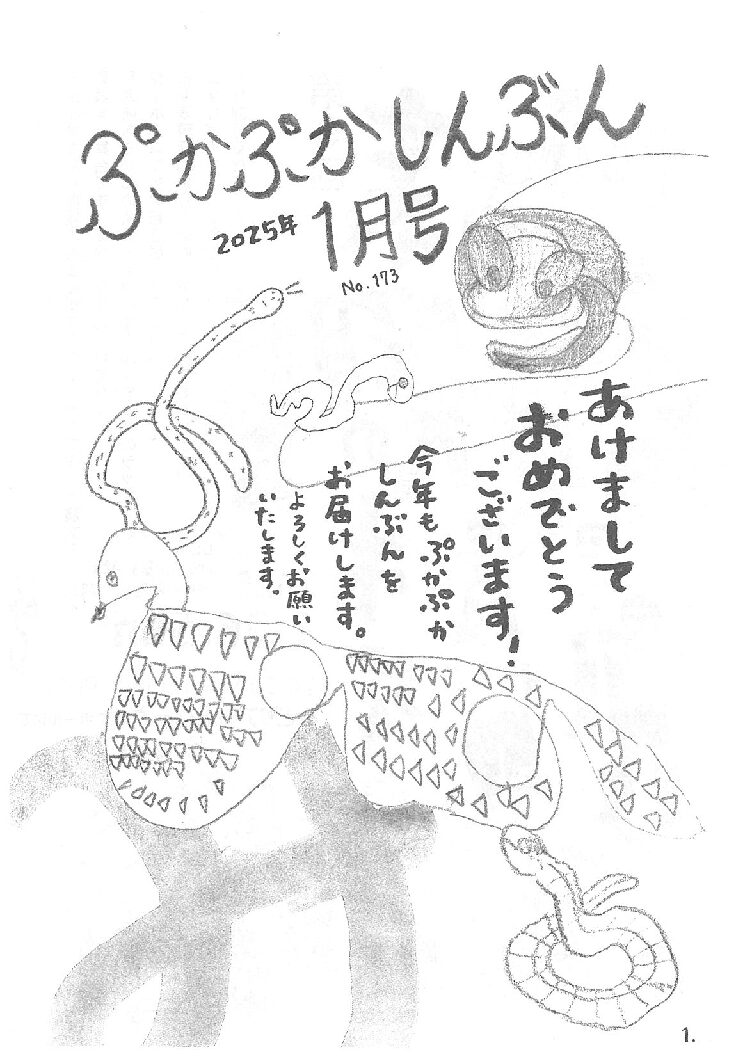 ぷかぷかしんぶん
2025年
1月号
No.173
あけまして
おめでとう
ございます!
今年もぷかぷか
しんぶんを
お届けします。
よろしくお願い
いたします。
1.